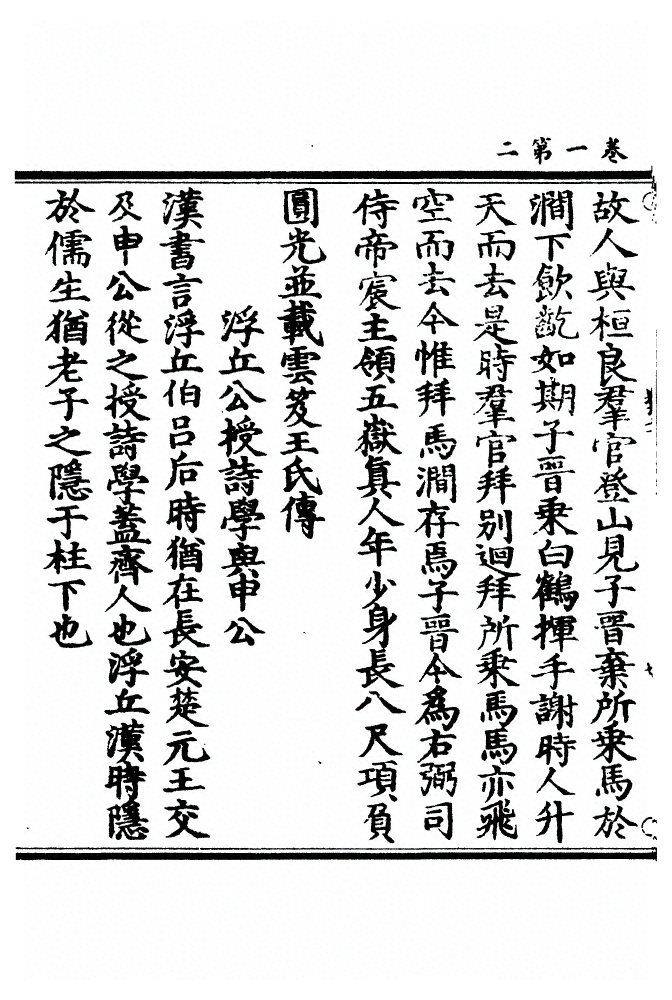 卷一第二
故人與桓良羣官登山見子晉棄所乘馬於
澗下飲齕如期子晉乘白鶴揮手謝時人升
天而去是時羣官拜别迴拜所乘馬馬亦飛
空而去今惟拜馬澗存焉子晉今爲右弼司
侍帝宸主領五嶽真人年少身長八尺項負
圓光並載雲笈王氏傳
浮丘公授詩學與申公
漢書言浮丘伯吕后時猶在長安楚元王交
及申公從之授詩學蓋齊人也浮丘漢時隱
於儒生猶老子之隱于柱下也